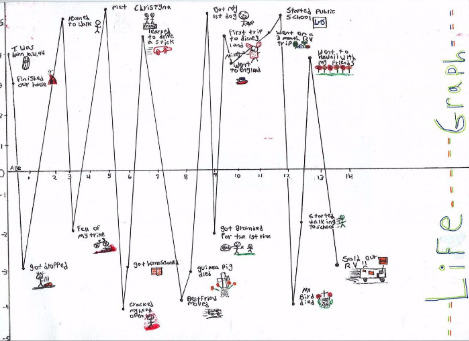 I was
Finished
our house
learned
to walk
met Christyna
learned
to drive
a stick
Got my
1st dog
First trip
to disney
land
Went
to England
Started Public
School
Went on a
3 month RV
trip
Went to
hawaii with
my friends
Age
0
1
2
3
4
5
6
7
8
9
10
11
12
13
14
got dropped
Fell of
my trike
got homeschooled
Cracked
my head
open
guinea Pig
died
Best friend
moved
got Grounded
For the 1st time
Started
walking
to school
My
Bird
died
Sold our
RV!!
Life-Graph